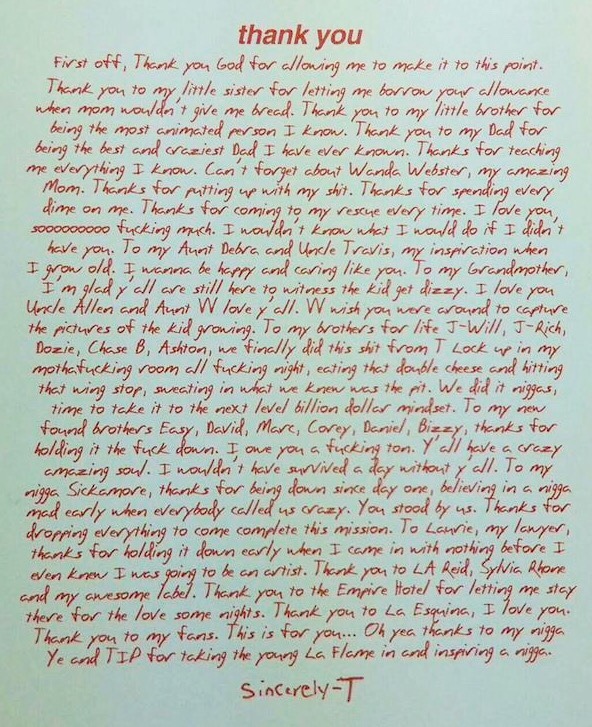 thank you
First off, Thank you God for allowing me to make it to this point.
Thank you to my little sister for letting me borrow your allowance
when mom wouldn't give me bread. Thank you to my little brother for
being the most animated person I know. Thank you to my Dad for
being the best and craziest Dad I have ever known. Thanks for teaching
me everything I know. Can't forget about Wanda Webster, my amazing
Mom. Thanks for putting up with my shit. Thanks for spending every
dime on me. Thanks for coming to my rescue every time. I love you,
soooooooooo fucking much. I wouldn't know what I would do if I didn't
have you. To my Aunt Debra and Uncle Travis, my inspiration when
I grow old. I wanna be happy and caring like you. To my Grandmother,
I'm glad y'all are still here to witness the kid get dizzy. I love you
Uncle Allen and Aunt W love y'all. W wish you were around to capture
the pictures of the kid growing. To my brothers for life J-Will, J-Rich,
Dozie, Chase B, Ashton, we finally did this shit from T Lock up in my
mothafucking room all fucking night, eating that double cheese and hitting
that wing stop, sweating in what we knew was the pit. We did it niggas,
time to take it to the next level billion dollar mindset. To my new
found brothers Easy, David, Marc, Corey, Daniel, Bizzy, thanks for
holding it the fuck down. I owe you a fucking ton. Y'all have a crazy
amazing soul. I wouldn't have survived a day without y'all. To my
nigga Sickamore, thanks for being down since day one, believing in a nigga
mad early when everybody called us crazy. You stood by us. Thanks for
dropping everything to come complete this mission. To Laurie, my lawyer,
thanks for holding it down early when I came in with nothing before I
even knew I was going to be an artist. Thank you to LA Reid, Sylvia Rhone
and my awesome label. Thank you to the Empire Hotel for letting me stay
there for the love some nights. Thank you to La Esquina, I love you.
Thank you to my fans. This is for you... Oh yea thanks to my nigga
Ye and TIP for taking the young La Flame in and inspiring a nigga.
Sincerely-T